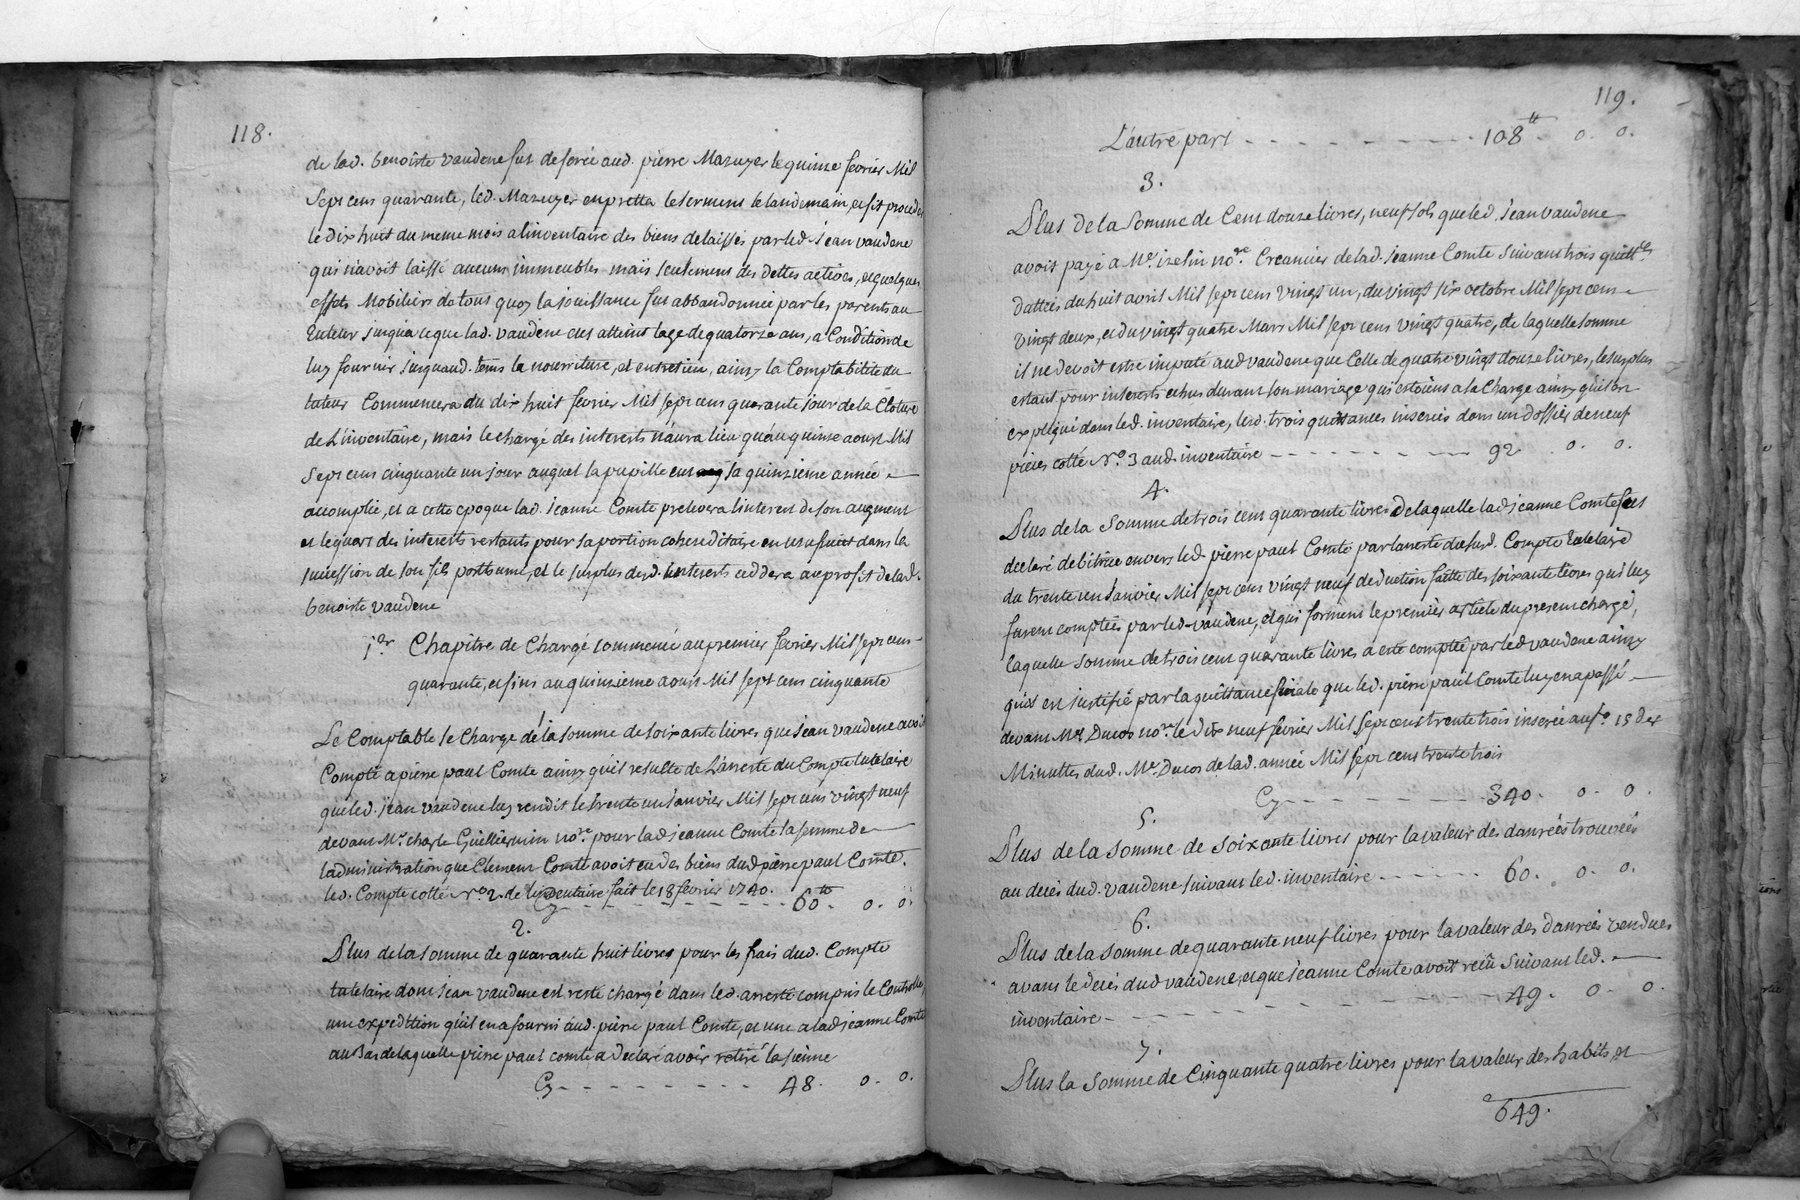 118.
de lad. benoiste vaudene fut deferée aud. pierre Mazuyer le quinze fevrier Mil
Sept cens quarante, led. Mazuyer en pretta le serment le landemain, et fit proceder
le dix huit du meme mois a linventaire des biens delaissés par led. jean vaudene
qui n'avoit laissé aucuns immeubles mais seulement des dettes actives, et quelques
effets Mobiliers de tous quoy la jouissance fut abbandonnée par les parents au
tuteur jusqua ce que lad. vaudene eut atteint lage de quatorze ans, a Condition de
luy fournir jusquaud. tems la nourriture, et entretien, ainsy la Comptabilité du
tuteur Commencera du dix huit fevrier Mil sept cens quarante jour de la Cloture
de L'inventaire, mais le chargé des interests n'aura lieu qu'au quinze aoust Mil
Sept cens cinquante un jour auquel la pupille eut sa quinzieme année
accomplie, et a cette epoque lad. jeanne Comte prelevera linterest de son augment
et le quart des interests restants pour sa portion cohereditaire en usufruit dans la
succession de son fils posthume, et le surplus desd. interests ceddera au profit de lad.
benoiste vaudene
1er Chapitre de Chargé commencé au premier fevrier Mil sept cens
quarante, et fini au quinzieme aoust Mil sept cens cinquante
1
Le Comptable se Charge de la somme de soixante livres que jean vaudene avoit
Compté a pierre paul Comte ainsy qu'il resulte de L'arresté du Compte tutelaire
que led. jean vaudene luy rendit le trente un janvier Mil sept cens vingt neuf
devant Me. charle Guilliermin nore. pour lad. jeanne Comte sa femme de
ladministration que Clement Comte avoit eu des biens dud. pierre paul Comte.
led. Compte cotté No. 2. de linventaire fait le 18 fevrier 1740.
Cy - - - - - - - - - 60tt. 0. 0.
2.
Plus de la somme de quarante huit livres pour les frais dud. Compte
tutelaire dont jean vaudene est resté chargé dans led. arresté compris le Controlle,
une expedition qu'il en a fourni aud. pierre paul Comte, et une a lad. jeanne Comte
au Bas de laquelle pierre paul comte a declaré avoir retiré la sienne
Cy - - - - - - - - - 48. 0. 0.
119.
L'autre part - - - - - - - 108tt. 0. 0.
3.
Plus de la Somme de Cent douze livres, neuf sols que led. jean vaudene
avoit payé a Me. nore. Creancier de lad. jeanne Comte suivant trois quittces.
dattées du huit avril Mil sept cens vingt un, du vingt six octobre Mil sept cens
vingt deux, et du vingt quatre Mars Mil sept cens vingt quatre, de laquelle somme
il ne devoit estre imputé aud. vaudene que Celle de quatre vingt douze livres, le surplus
estant pour interests echus durant son mariage qui estoient a la Charge ainsy qu'il est
expliqué dans led. inventaire, lesd. trois quittances inserées dans un dossier de neuf
pieces cotté No. 3 aud. inventaire - - - - - - - 92. 0. 0.
4.
Plus de la Somme de trois cent quarante livres de laquelle lad. jeanne Comte fut
declaré debitrice envers led. pierre paul Comte par larresté dusud. Compte tutelaire
du trente un janvier Mil sept cens vingt neuf deduction faitte des soixante livres qui luy
furent comptées par led. vaudene, et qui forment le premier article du present chargé,
laquelle somme de trois cent quarante livres a esté comptée par led. vaudene ainsy
qu'il est justifié par la quittance finale que led. pierre paul Comte luy en a passé
devant Me. Ducos nore. le dix neuf fevrier Mil sept cens trente trois inserée au fo. 15 des
Minuttes dud. Me. Ducos de lad. année Mil sept cens trente trois
Cy - - - - - - - 340. 0. 0.
5.
Plus de la Somme de Soixante livres pour la valeur des danrées trouvées
au decès dud. vaudene suivant led. inventaire - - - - - - 60. 0. 0.
6.
Plus de la somme de quarante neuf livres pour la valeur des danrées vendues
avant le decès dud. vaudene, et que jeanne Comte avoit reçû Suivant led.
inventaire - - - - - - - - - - 49. 0. 0.
7.
Plus la Somme de Cinquante quatre livres pour la valeur des habits, et
649.